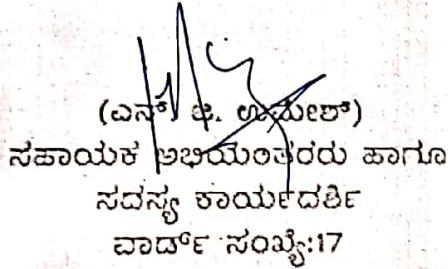 (ಎನ್. ಜಿ. ಉಮೇಶ್)
ಸಹಾಯಕ ಅಭಿಯಂತರರು ಹಾಗೂ
ಸದಸ್ಯ ಕಾರ್ಯದರ್ಶಿ
ವಾರ್ಡ್ ಸಂಖ್ಯೆ:17